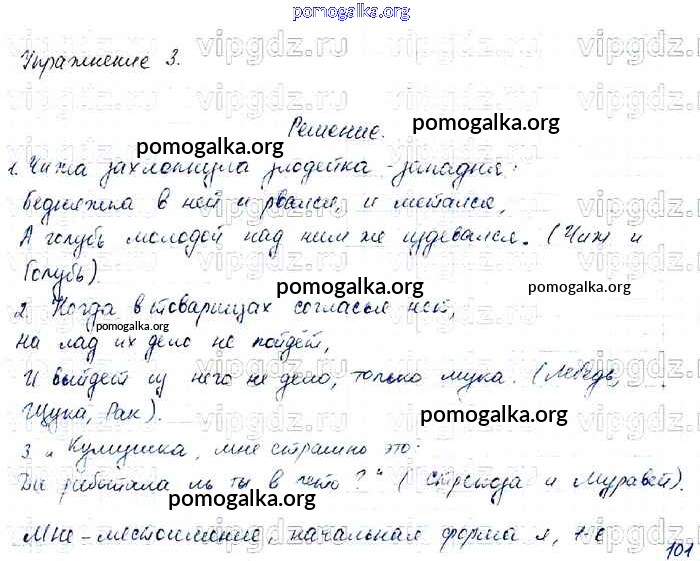 pomogalka.org
Упражнение 3.
Решение.
pomogalka.org
1. Чижа захлопнула злодейка-западня:
pomogalka.org
Бедняжка в ней и рвался, и метался,
А голубь молодой над ним же издевался. (Чиж и
Голубь).
pomogalka.org
2. Когда в товарищах согласья нет,
pomogalka.org
На лад их дело не пойдёт,
pomogalka.org
И выйдет из него не дело, только мука. (Лебедь,
Щука, Рак).
pomogalka.org
3. „Кумушка, мне странно это:
Да работала ль ты в лето?" (Стрекоза и Муравей).
pomogalka.org
Мне - местоимение, начальная форма я, 1-е
101
vipgdz.ru